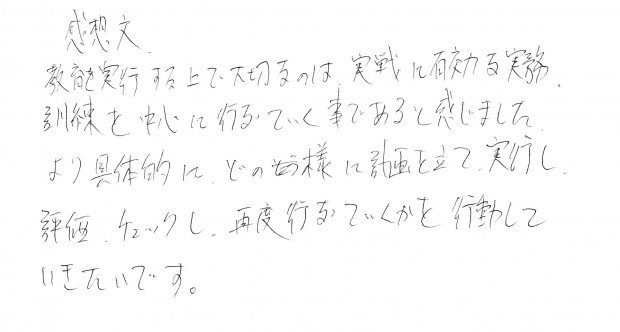 感想文
教育を実行する上で大切なのは、実戦に有効な実務、
訓練を中心に行なっていく事であると感じました。
より具体的に、どの様に計画を立て、実行し、
評価、チェックし、再度行なっていくかを行動して
いきたいです。